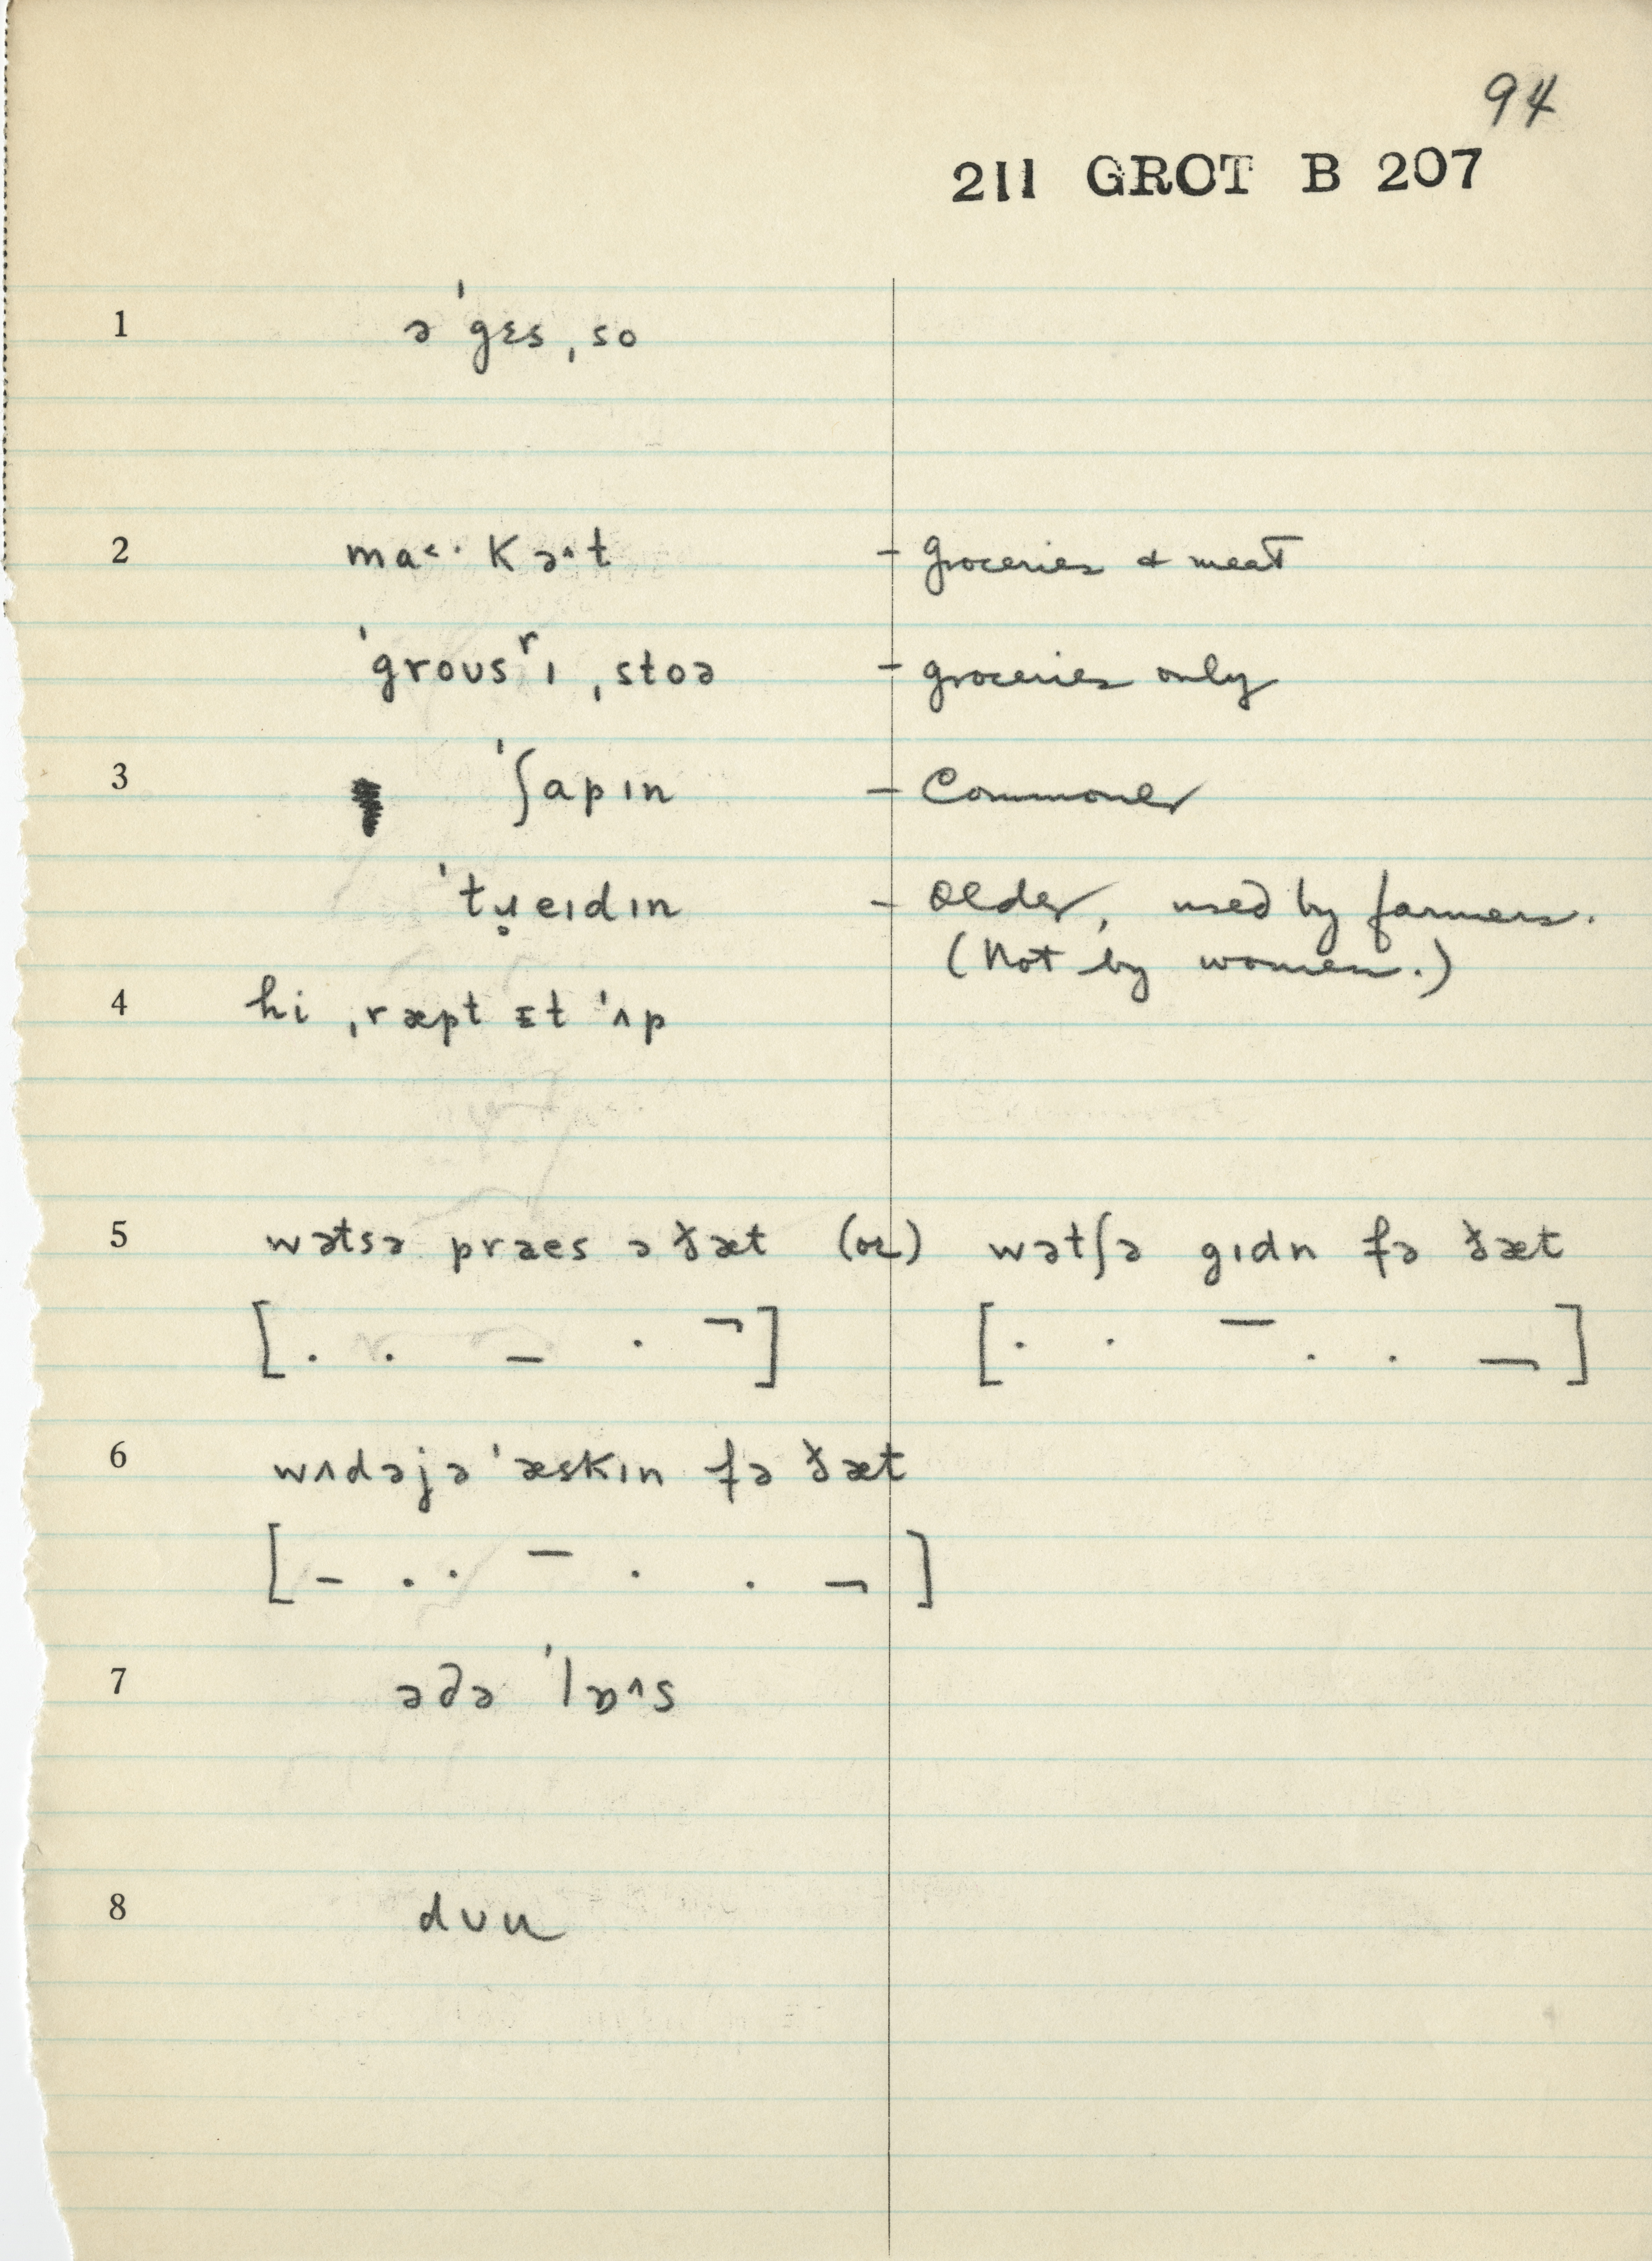 94
211 GROT B 207
1 ə ˈgɛs ˌso
2 ma˂· kə^t – groceries & meat
ˈgroʊsʳɪ ˌstoə – groceries only
3 ˈʃapɪn – Commoner
ˈtɹ̥eɪdɪn – older, used by farmers.
(Not by women.)
4 hi ˌræpt ɪt ˈʌp
5 wətsə praes ə ðæt (or) wətʃə gɪdn fə ðæt
6 wʌdəjə ˈæskɪn fə ðæt
7 əðə ˈlɒ^s
8 dʊu